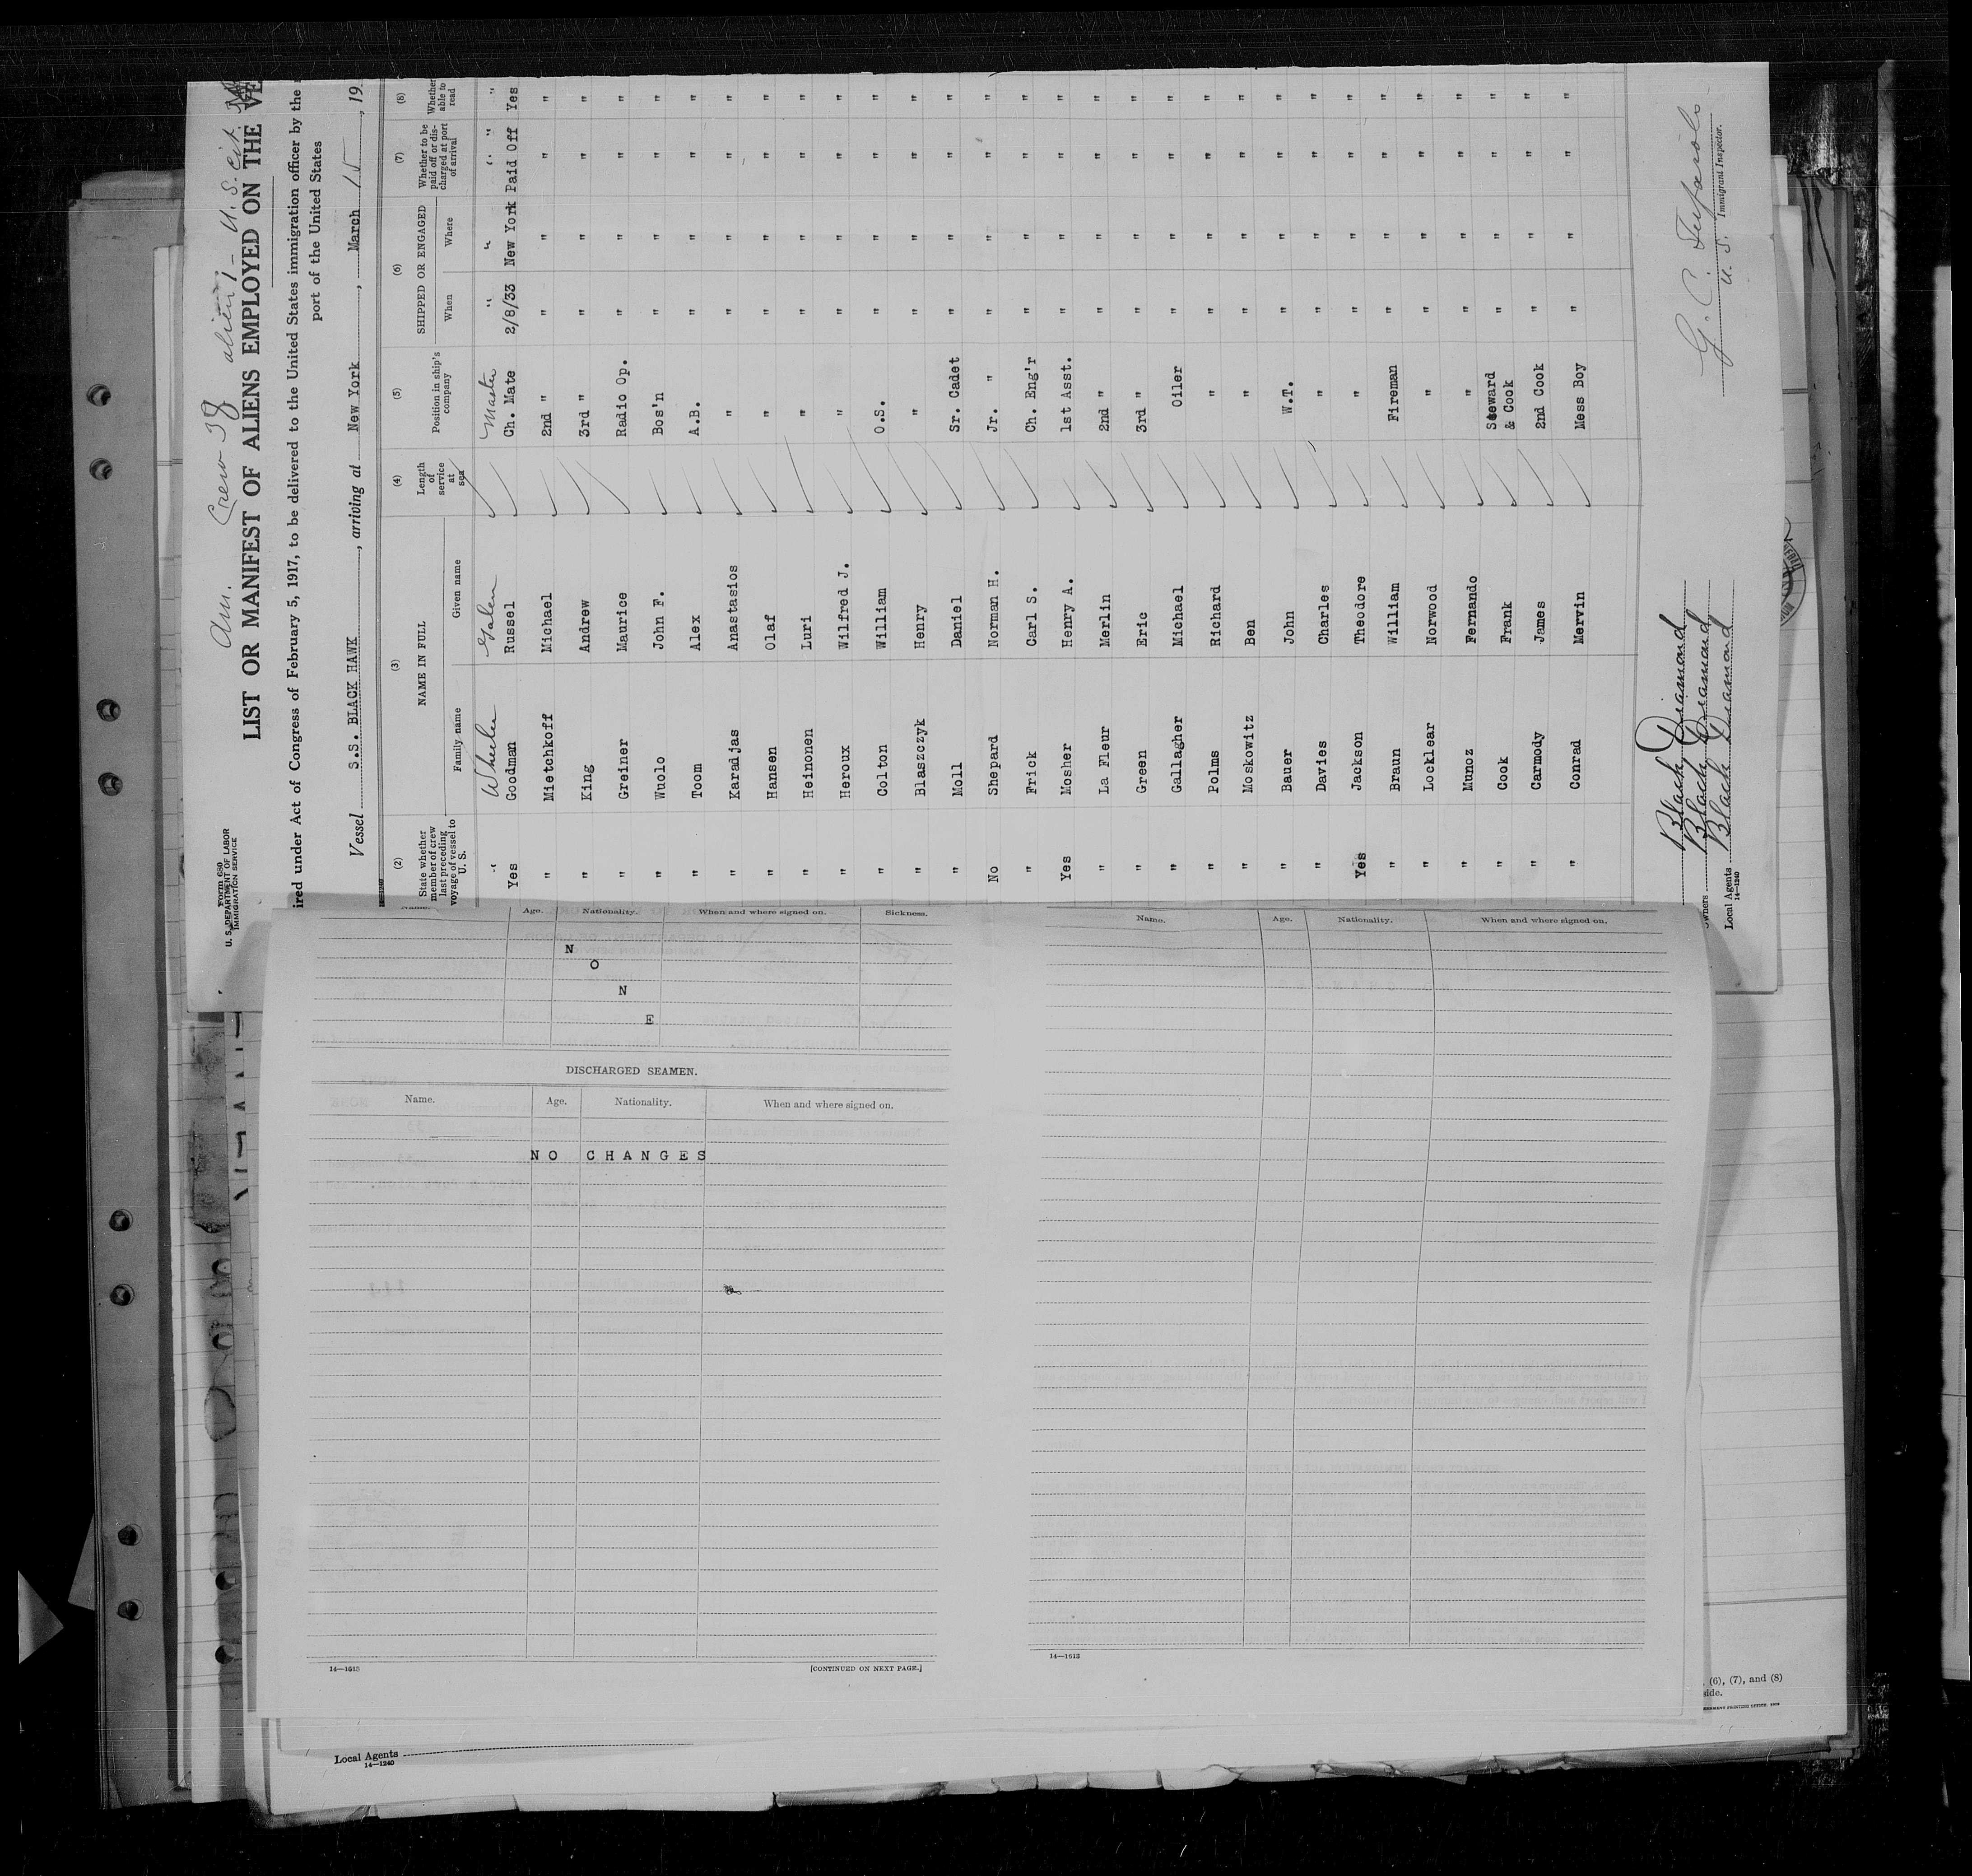 Am. Crew 38 alien 1 - U.S. cit.
Form 680
U. S. DEPARTMENT OF LABOR
IMMIGRATION SERVICE
LIST OR MANIFEST OF ALIENS EMPLOYED ON THE VE
ired under Act of Congress of February 5, 1917, to be delivered to the United States immigration officer by the
port of the United States
Vessel S.S. BLACK HAWK, arriving at New York, March 15, 19
(2) (3) (4) (5) (6) (7) (8)
State whether member of crew last preceding voyage of vessel to U. S. NAME IN FULL Family name Given name Length of service at sea Position in ship's company SHIPPED OR ENGAGED When Where Whether to be paid off or discharged at port of arrival Whether able to read
" Wheeler Galen Master " " " " "
Yes Goodman Russel Ch. Mate 2/8/33 New York Paid Off Yes
" Mietchkoff Michael 2nd " " " " "
" King Andrew 3rd " " " " "
" Greiner Maurice Radio Op. " " " "
" Wuolo John F. Bos'n " " " "
" Toom Alex A.B. " " " "
" Karadjas Anastasios " " " " "
" Hansen Olaf " " " " "
" Heinonen Luri " " " " "
" Heroux Wilfred J. " " " " "
" Colton William O.S. " " " "
" Blaszczyk Henry " " " " "
" Moll Daniel Sr. Cadet " " " "
No Shepard Norman H. Jr. " " " " "
" Frick Carl S. Ch. Eng'r " " " "
Yes Mosher Henry A. 1st Asst. " " " "
" La Fleur Merlin 2nd " " " " "
" Green Eric 3rd " " " " "
" Gallagher Michael Oiler " " " "
" Polms Richard " " " " "
" Moskowitz Ben " " " " "
" Bauer John W.T. " " " "
" Davies Charles " " " " "
Yes Jackson Theodore " " " " "
" Braun William Fireman " " " "
" Locklear Norwood " " " " "
" Munoz Fernando " " " " "
" Cook Frank Steward & Cook " " " "
" Carmody James 2nd Cook " " " "
" Conrad Mervin Mess Boy " " " "
Black Diamond
wners Black Diamond
Local Agents Black Diamond
14—1240
U. S. Immigrant Inspector.
Name. Age. Nationality. When and where signed on. Sickness.
N
O
N
E
DISCHARGED SEAMEN.
Name. Age. Nationality. When and where signed on.
NO CHANGES
14—1613 [CONTINUED ON NEXT PAGE.]
Name. Age. Nationality. When and where signed on.
14—1613
Local Agents
14—1240
, (6), (7), and (8)
side.